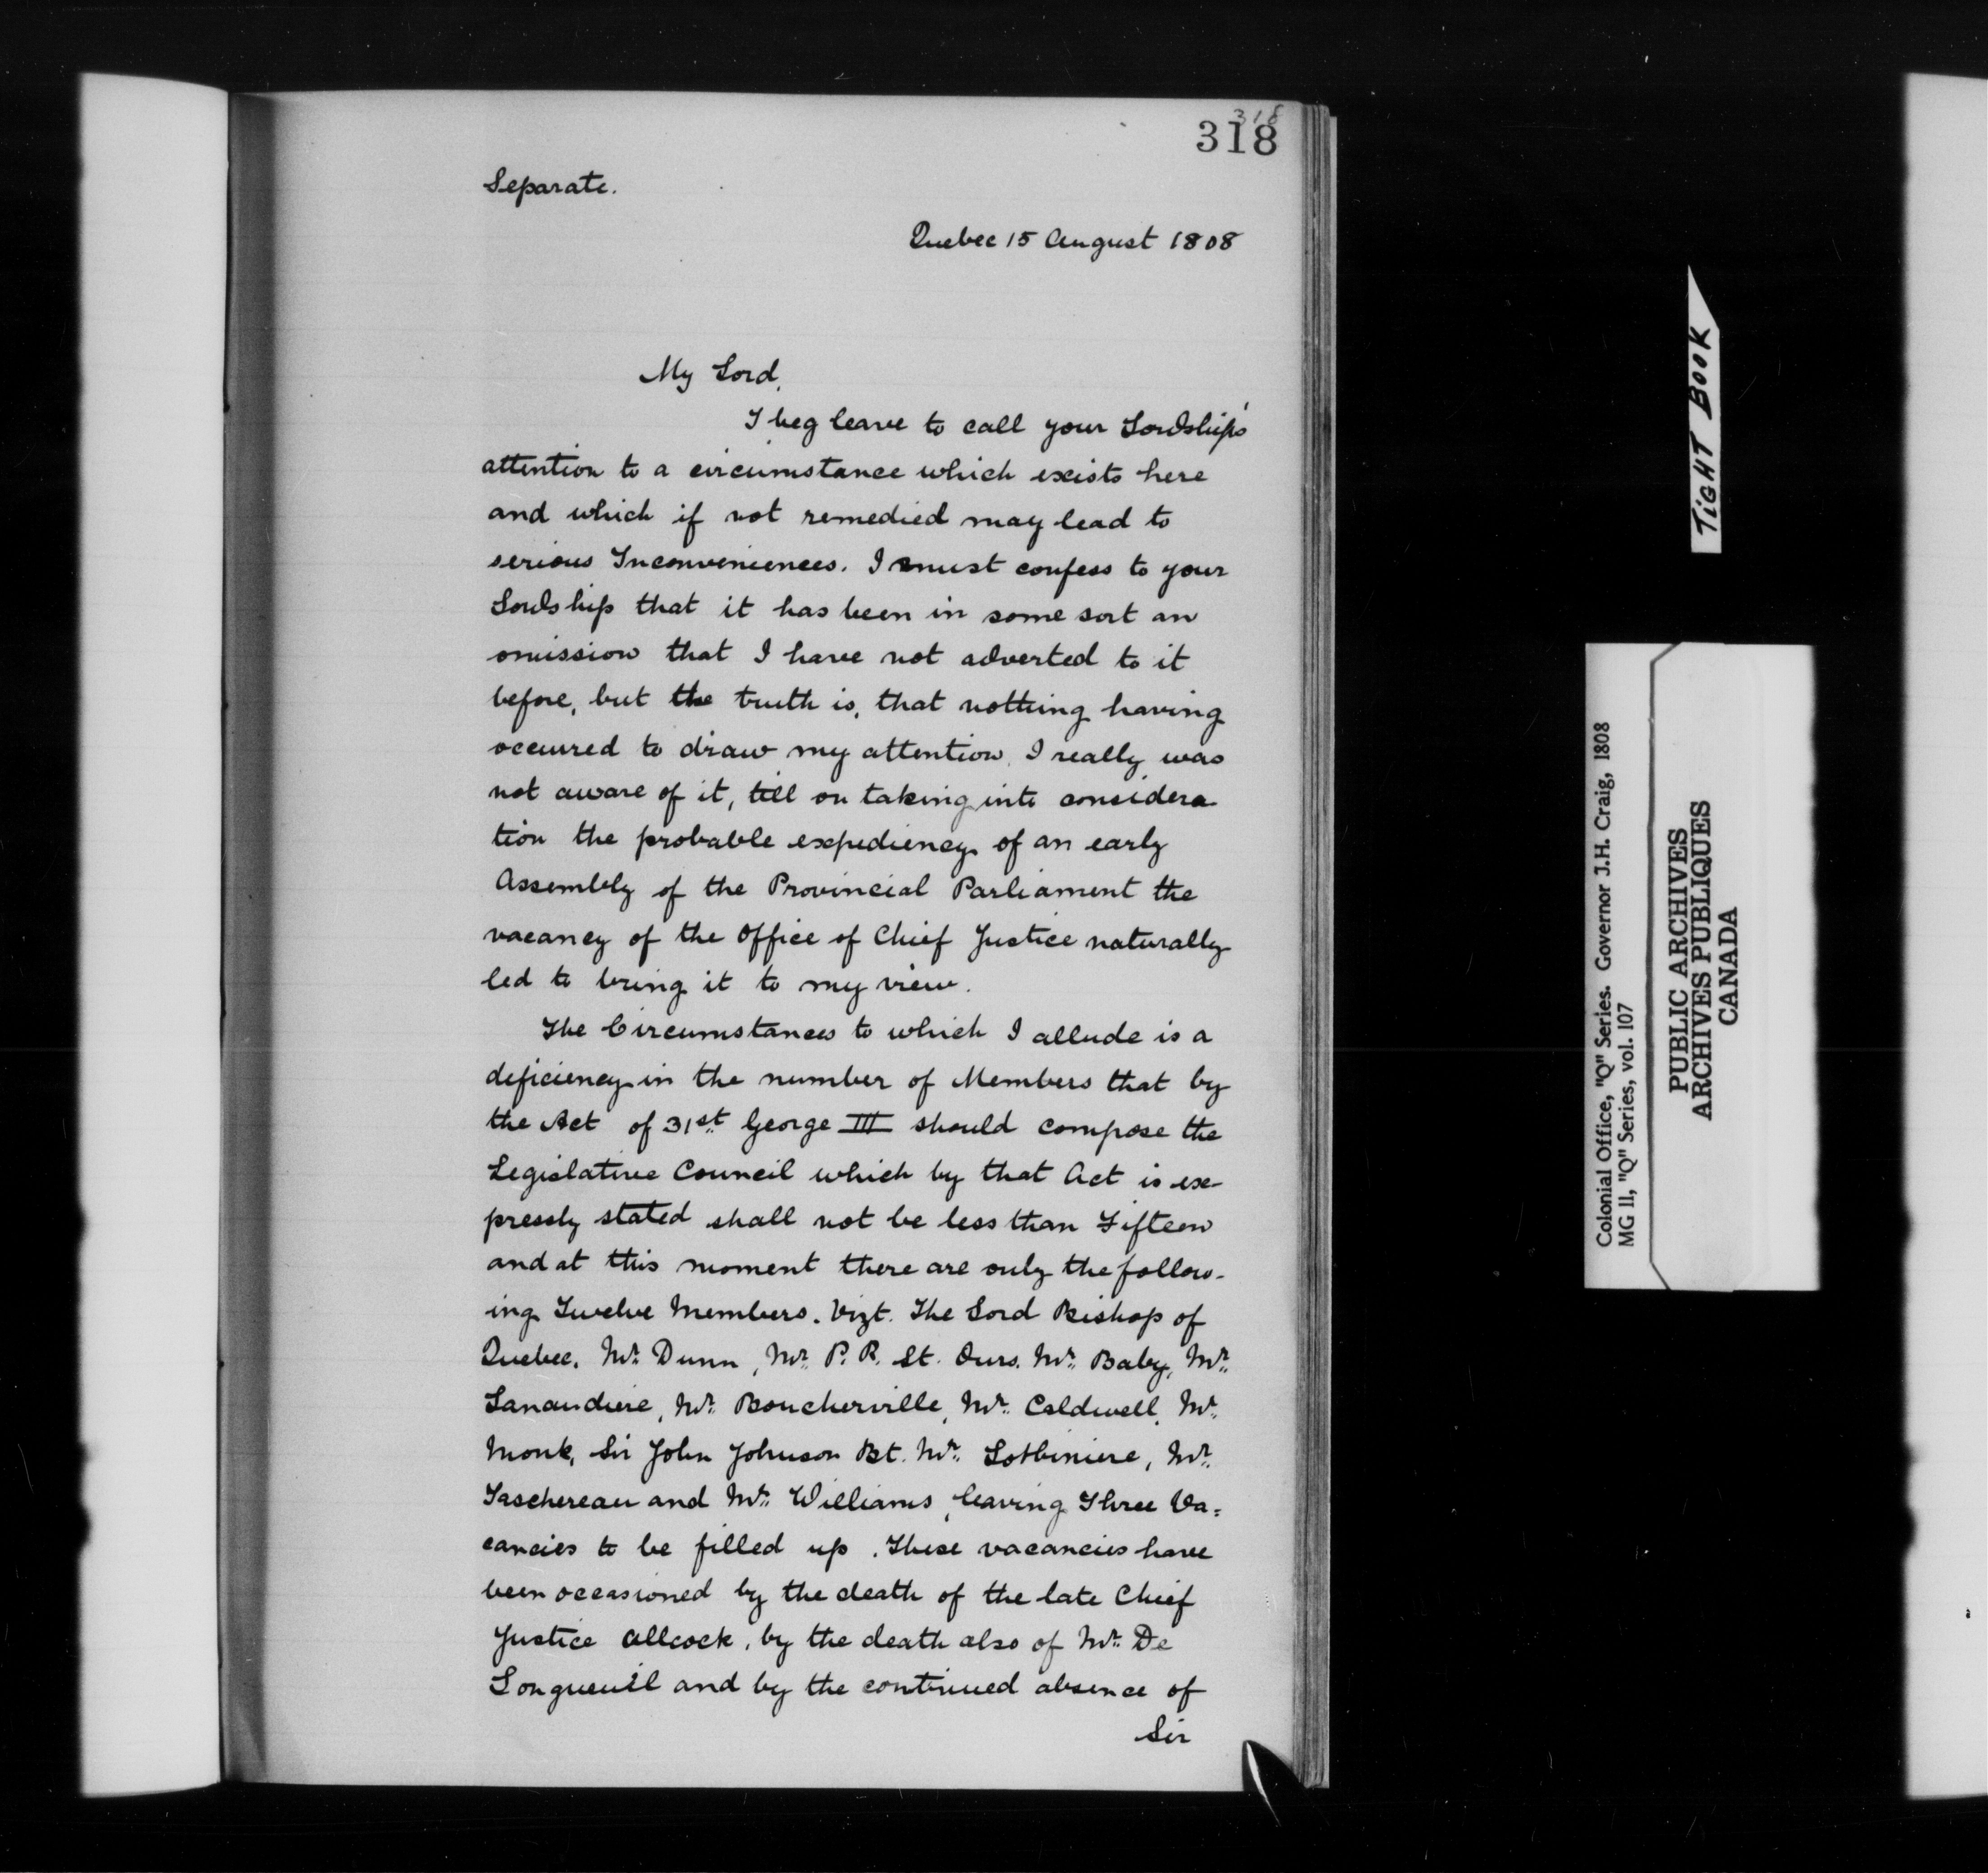 318
318
Separate.
Quebec 15 August 1808
My Lord,
I beg leave to call your Lordship's
attention to a circumstance which exists here
and which if not remedied may lead to
serious Inconveniences. I must confess to your
Lordship that it has been in some sort an
omission that I have not adverted to it
before, but the truth is, that nothing having
occured to draw my attention, I really was
not aware of it, till on taking into considera-
tion the probable expediency of an early
Assembly of the Provincial Parliament the
vacancy of the Office of Chief Justice naturally
led to bring it to my view.
The Circumstances to which I allude is a
deficiency in the number of Members that by
the Act of 31st George III should compose the
Legislative Council which by that Act is ex-
pressly stated shall not be less than Fifteen
and at this moment there are only the follow-
ing Twelve Members. Vizt. The Lord Bishop of
Quebec. Mr. Dunn, Mr. P. R. St. Ours. Mr. Baby, Mr.
Lanaudiere, Mr. Boucherville, Mr. Caldwell, Mr.
Monk, Sir John Johnson Bt. Mr. Lotbiniere, Mr.
Taschereau and Mr. Williams, leaving Three Va=
cancies to be filled up. These vacancies have
been occasioned by the death of the late Chief
Justice Allcock, by the death also of Mr. De
Longueuil and by the continued absence of
Sir
TIGHT BOOK
Colonial Office, "Q" Series. Governor J.H. Craig, 1808
MG 11, "Q" Series, vol. 107
PUBLIC ARCHIVES
ARCHIVES PUBLIQUES
CANADA